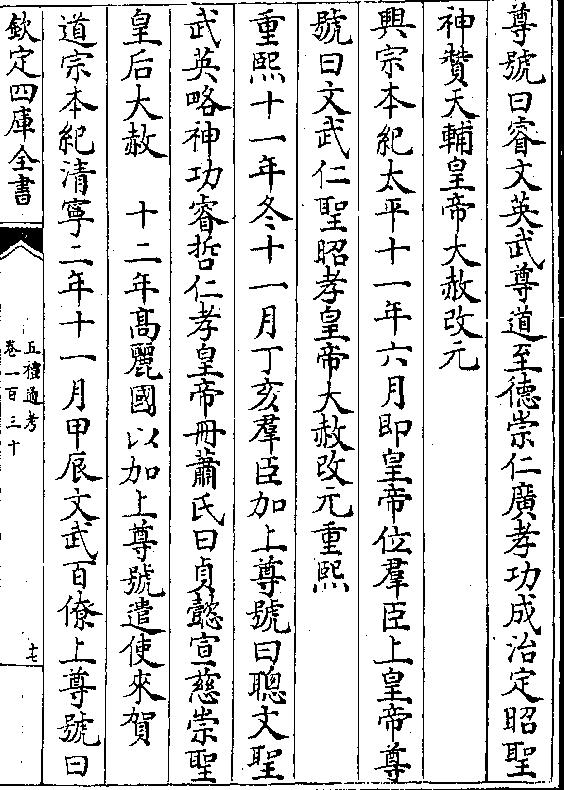 尊號曰睿文英武尊道至德崇仁廣孝功成治定昭聖
神贊天輔皇帝大赦改元
興宗本紀太平十一年六月即皇帝位羣臣上皇帝尊
號曰文武仁聖昭孝皇帝大赦改元重熙
重熙十一年冬十一月丁亥羣臣加上尊號曰聰文聖
武英略神功睿哲仁孝皇帝冊蕭氏曰貞懿宣慈崇聖
皇后大赦 十二年髙麗國以加上尊號遣使來賀
道宗本紀清寧二年十一月甲辰文武百僚上尊號曰
欽定四庫全書
五禮通考
卷一百三十
十七